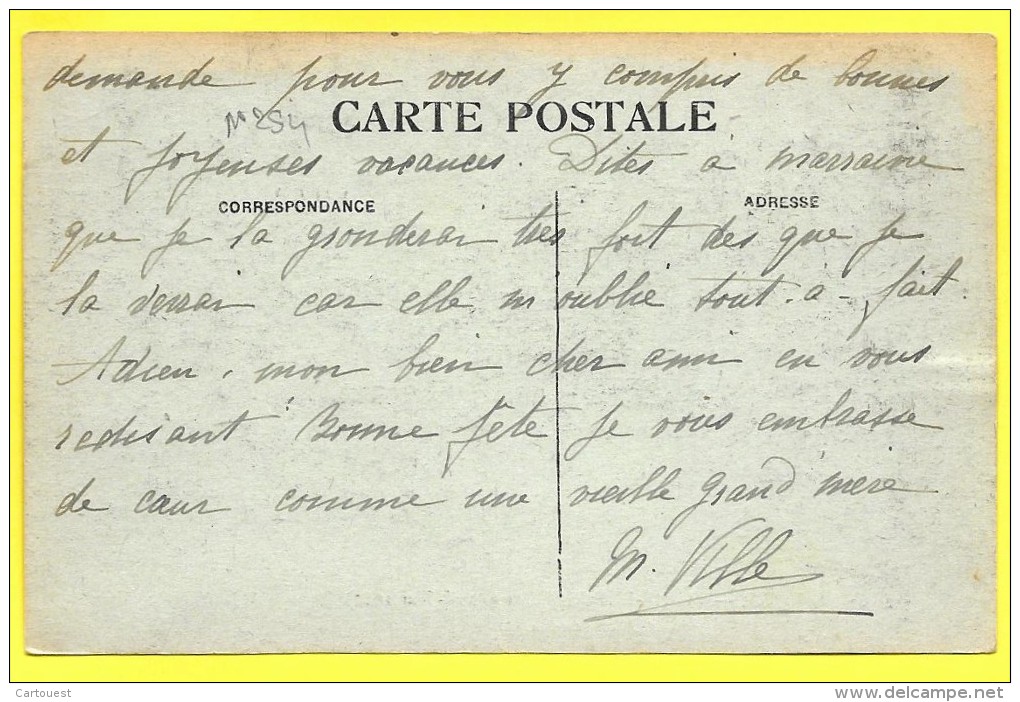 demande pour vous y compris de bonnes
N° 254
CARTE POSTALE
et joyeuses vacances. Dites à marraine
CORRESPONDANCE
ADRESSE
que je la gronderai très fort dès que je
la verrai car elle m'oublie tout-à-fait.
Adieu, mon bien cher ami en vous
redisant Bonne fête je vous embrasse
de cœur comme une vieille grand'mère
M. Ville
Cartouest
www.delcampe.net